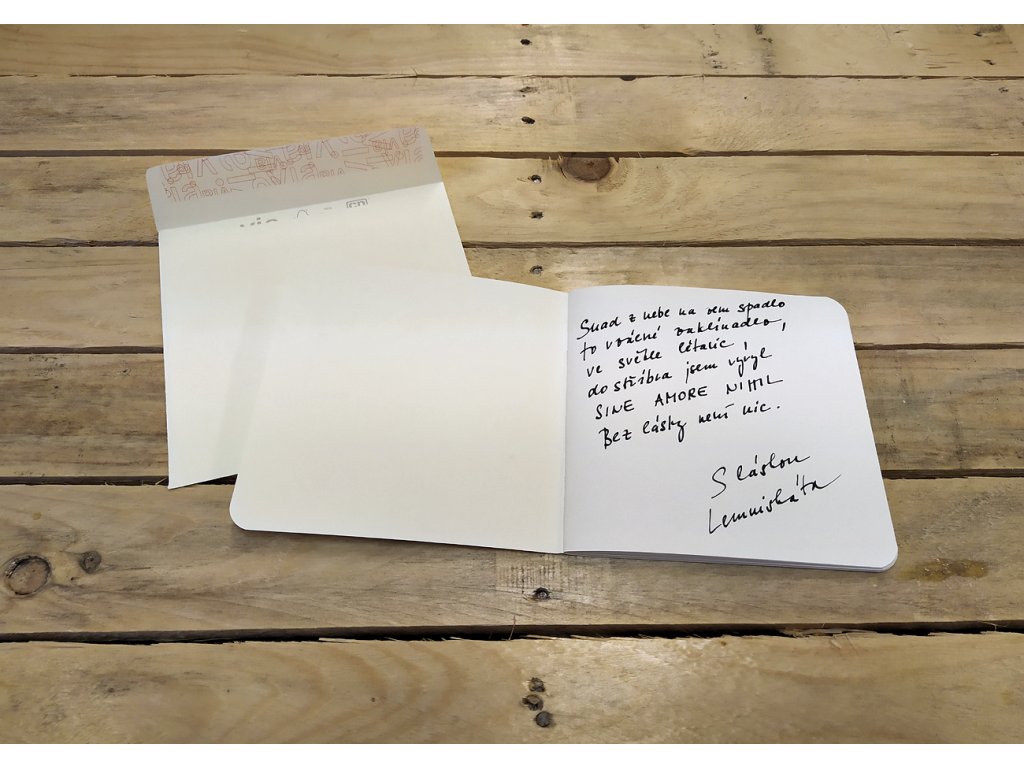 Snad z nebe na zem spadlo
to vzácné zaklínadlo,
ve světle létavic,
do stříbra jsem vyryl
SINE AMORE NIHIL
Bez lásky není nic.
S láskou
Lemniskáta